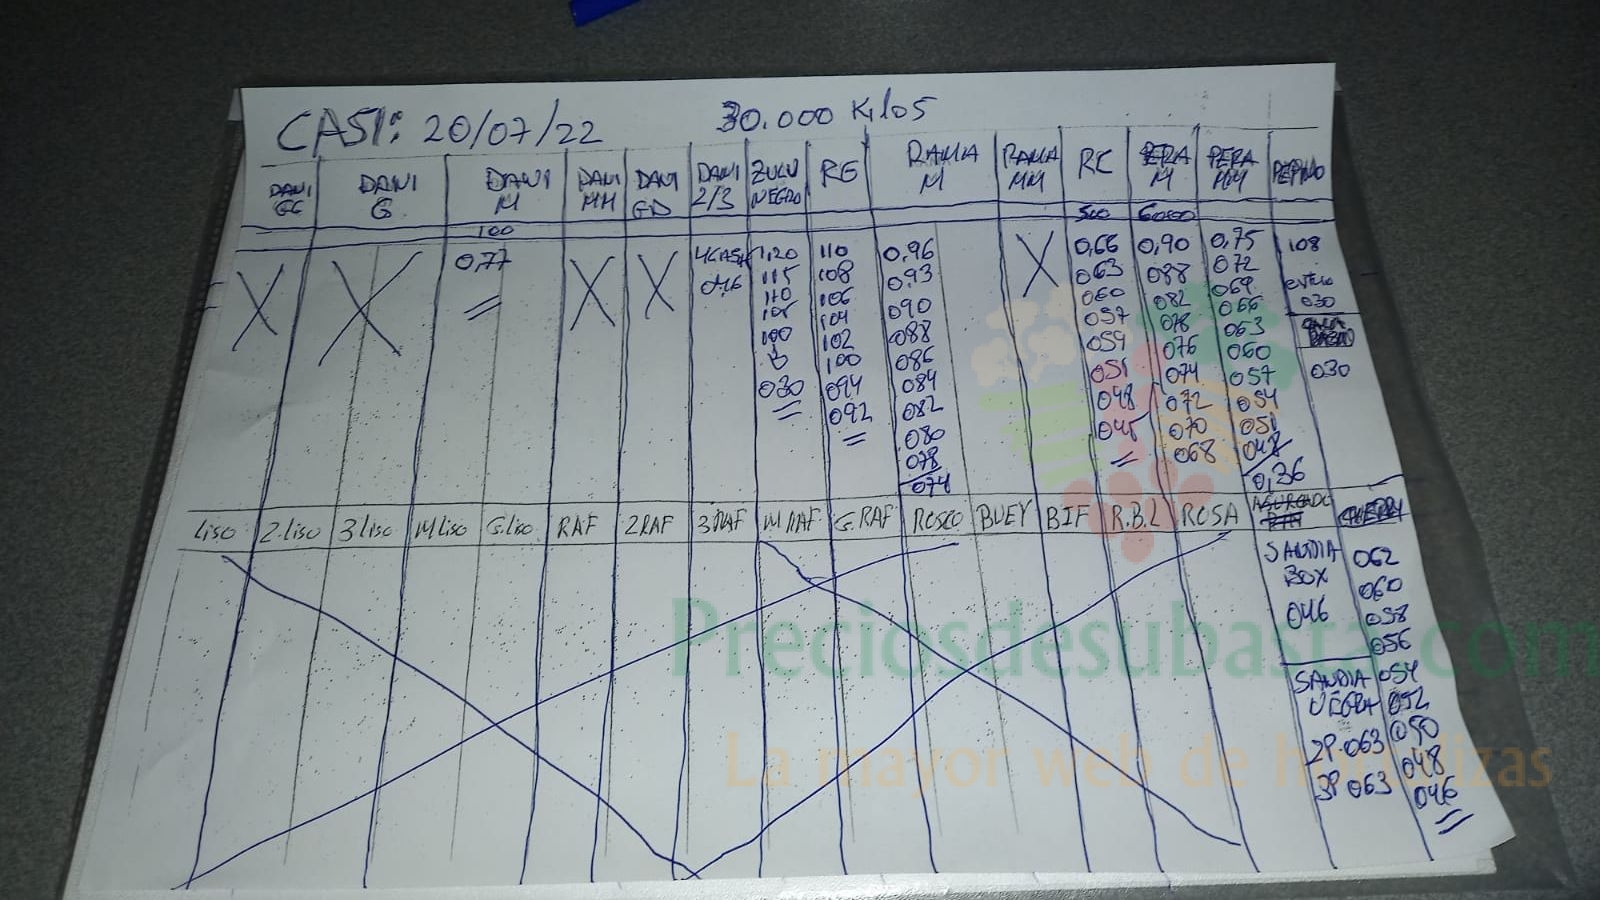 CASI: 20/07/22 30.000 KILOS
DANI GG DANI G DANI M DANI MM DANI GD DANI 2/3 ZULU NEGRO RG RAMA M RAMA MM RC PERA M PERA MM PEPINO
100 500 6000
X X 0,77 X X 4CASI 1,20 110 0,96 X 0,66 0,90 0,75 108
046 115 108 0,93 063 088 072 corto
110 106 090 060 082 069 030
104 088 057 078 066
100 102 086 054 076 063
100 084 051 074 060 030
030 094 082 048 072 057
092 080 045 070 054
078 068 051
074 048
0,36
LISO 2.LISO 3LISO MLISO G.LISO RAF 2RAF 3RAF M RAF G.RAF ROSCO BUEY BIF R.B.L ROSA ASURCADO
SANDIA BOX 062
046 060
058
056
SANDIA NEGRA 054
052
2P.063 050
3P 063 048
046
Preciosdesubasta.com
La mayor web de hortalizas